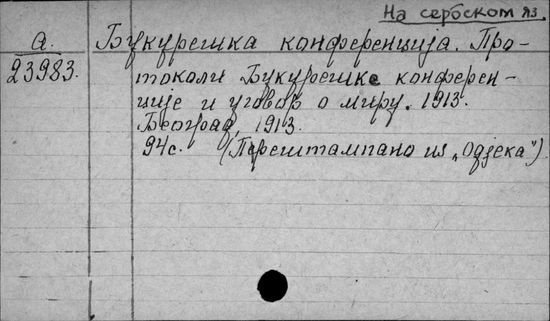 На сербском яз.
а.
23983.
Букурешка конференција. Про-
токоли Букурешке конферен-
ције и уговор о миру. 1913.
Београд, 1913.
94с. (Прештампано из „Одјека")